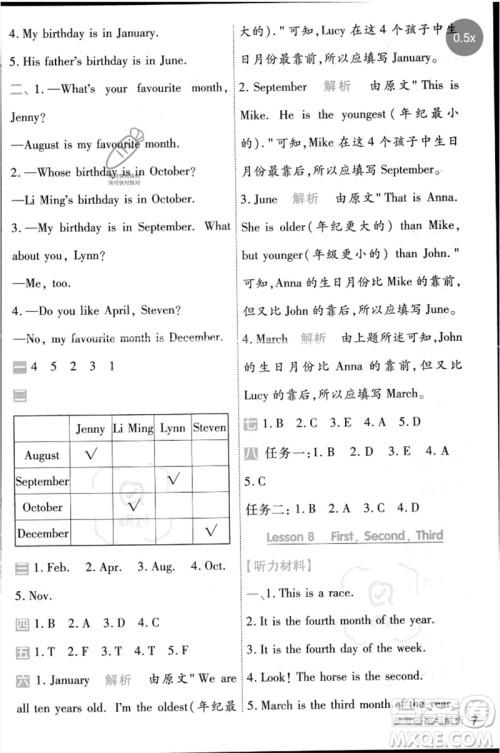 4. My birthday is in January.
5. His father's birthday is in June.
二、1. —What's your favourite month,
Jenny?
—August is my favourite month.
2. —Whose birthday is in October?
—Li Ming's birthday is in October.
3. —My birthday is in September. What
about you, Lynn?
—Me, too.
4. —Do you like April, Steven?
—No, my favourite month is December.
一 4 5 2 3 1
二
Jenny Li Ming Lynn Steven
August √
September √
October √
December √
三 1. Feb. 2. Jan. 3. Aug. 4. Oct.
5. Nov.
四 1. B 2. D 3. A 4. C
五 1. T 2. F 3. F 4. T 5. T
六 1. January 解析 由原文"We are
all ten years old. I'm the oldest(年纪最
大的)."可知,Lucy 在这 4 个孩子中生
日月份最靠前,所以应填写 January。
2. September 解析 由原文"This is
Mike. He is the youngest(年纪最小
的)."可知,Mike 在这 4 个孩子中生日
月份最靠后,所以应填写 September。
3. June 解析 由原文"That is Anna.
She is older(年纪更大的) than Mike,
but younger(年纪更小的) than John."
可知,Anna 的生日月份比 Mike 的靠前,
但又比 John 的靠后,所以应填写 June。
4. March 解析 由上题所述可知,John
的生日月份比 Anna 的靠前,但又比
Lucy 的靠后,所以应填写 March。
七 1. B 2. C 3. E 4. A 5. D
八 任务一:1. B 2. C 3. A 4. A
5. C
任务二:1. B 2. A 3. D 4. C
Lesson 8 First, Second, Third
【听力材料】
一、1. This is a race.
2. It is the fourth month of the year.
3. It is the fourth day of the week.
4. Look! The horse is second.
5. March is the third month of the year.
0.5x
7